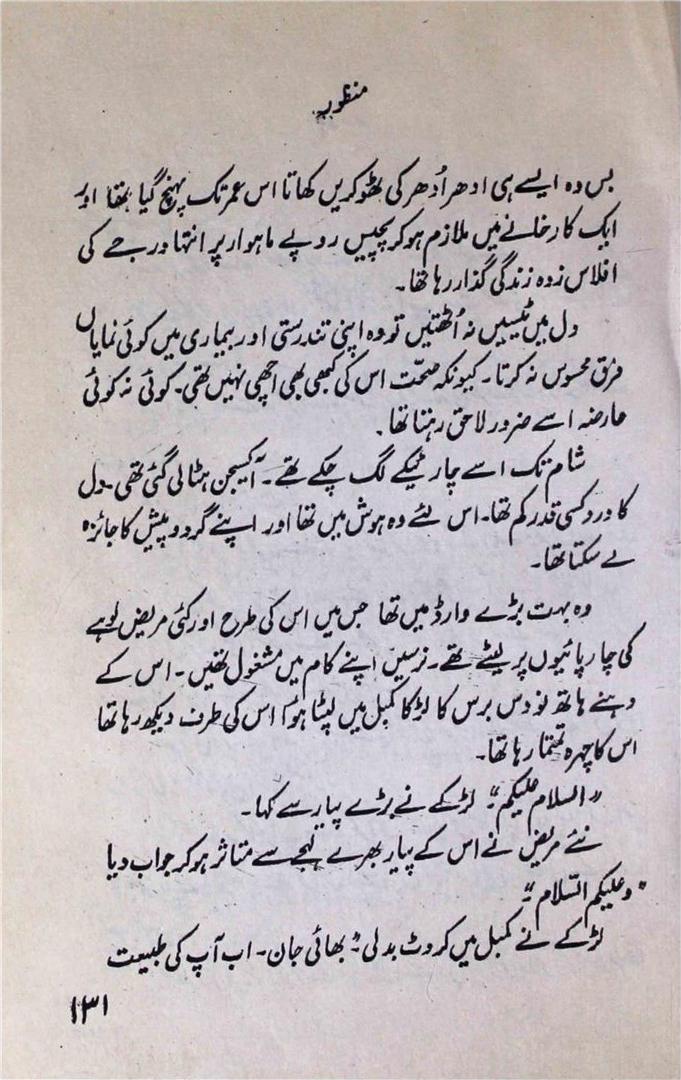 منظوبہ
بس وہ ایسے ہی ادھر اُدھر کی ٹھوکریں کھاتا اس عمر تک پہنچ گیا تھا اور
ایک کارخانے میں ملازم ہو کر پچیس روپے ماہوار پر انتہا درجے کی
افلاس زدہ زندگی گذار رہا تھا۔
دل میں ٹیسیں نہ اُٹھتیں تو وہ اپنی تندرستی اور بیماری میں کوئی نمایاں
فرق محسوس نہ کرتا۔ کیونکہ صحّت اس کی کبھی بھی اچھی نہیں تھی۔ کوئی نہ کوئی
عارضہ اسے ضرور لاحق رہتا تھا۔
شام تک اسے چار ٹیکے لگ چکے تھے۔ آکسیجن ہٹا لی گئی تھی۔ دل
کا درد کسی قدر کم تھا۔ اس لئے وہ ہوش میں تھا اور اپنے گرد و پیش کا جائزہ
لے سکتا تھا۔
وہ بہت بڑے وارڈ میں تھا جس میں اس کی طرح اور کئی مریض لوہے
کی چارپائیوں پر لیٹے تھے۔ نرسیں اپنے کام میں مشغول تھیں۔ اس کے
دہنے ہاتھ نو دس برس کا لڑکا کمبل میں لپٹا ہوُا اس کی طرف دیکھ رہا تھا
اس کا چہرہ تمتما رہا تھا۔
"السلام علیکم"۔ لڑکے نے بڑے پیار سے کہا۔
نئے مریض نے اس کے پیار بھرے لہجے سے متاثر ہو کر جواب دیا
"وعلیکم السّلام"۔
لڑکے نے کمبل میں کروٹ بدلی "بھائی جان۔ اب آپ کی طبیعت
۱۳۱